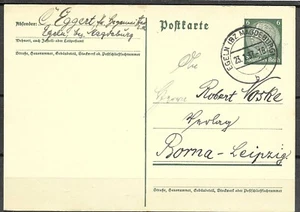 Absender: C. Eggert
Egeln Bez. Magdeburg
Wohnort, auch Zustell- oder Leitpostamt
Straße, Hausnummer, Gebäudeteil, Stockwerk od. Postschließfachnummer
Postkarte
6
EGELN (BZ. MAGDEBURG)
b
Robert Noske
Verlag
Borna-Leipzig
Straße, Hausnummer, Gebäudeteil, Stockwerk oder Postschließfachnummer